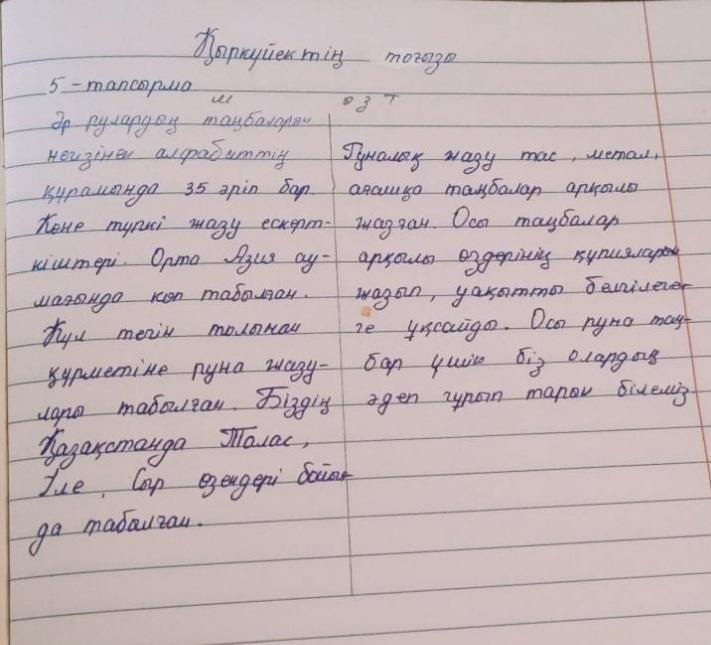 Қыркүйектің тоғызы
5-тапсырма
м өзт
Әр рулардың таңбаларын
негізінен алфабиттің
құрамында 35 әріп бар.
Көне түркі жазу ескерт-
кіштері. Орта Азия ау-
мағында көп табылған.
Күл тегін толынан
құрметіне руна жазу-
лары табылған. Біздің
Қазақстанда Талас,
Іле, Сыр өзендері бойын
да табылған.
Руналық жазу тас, метал,
ағашқа таңбалар арқылы
жазған. Осы таңбалар
арқылы өздерінің құпияларын
жазып, уақытты белгілеген
ге ұқсайды. Осы руна таң-
бар үшін біз олардың
әдеп ғұрып тарын білеміз